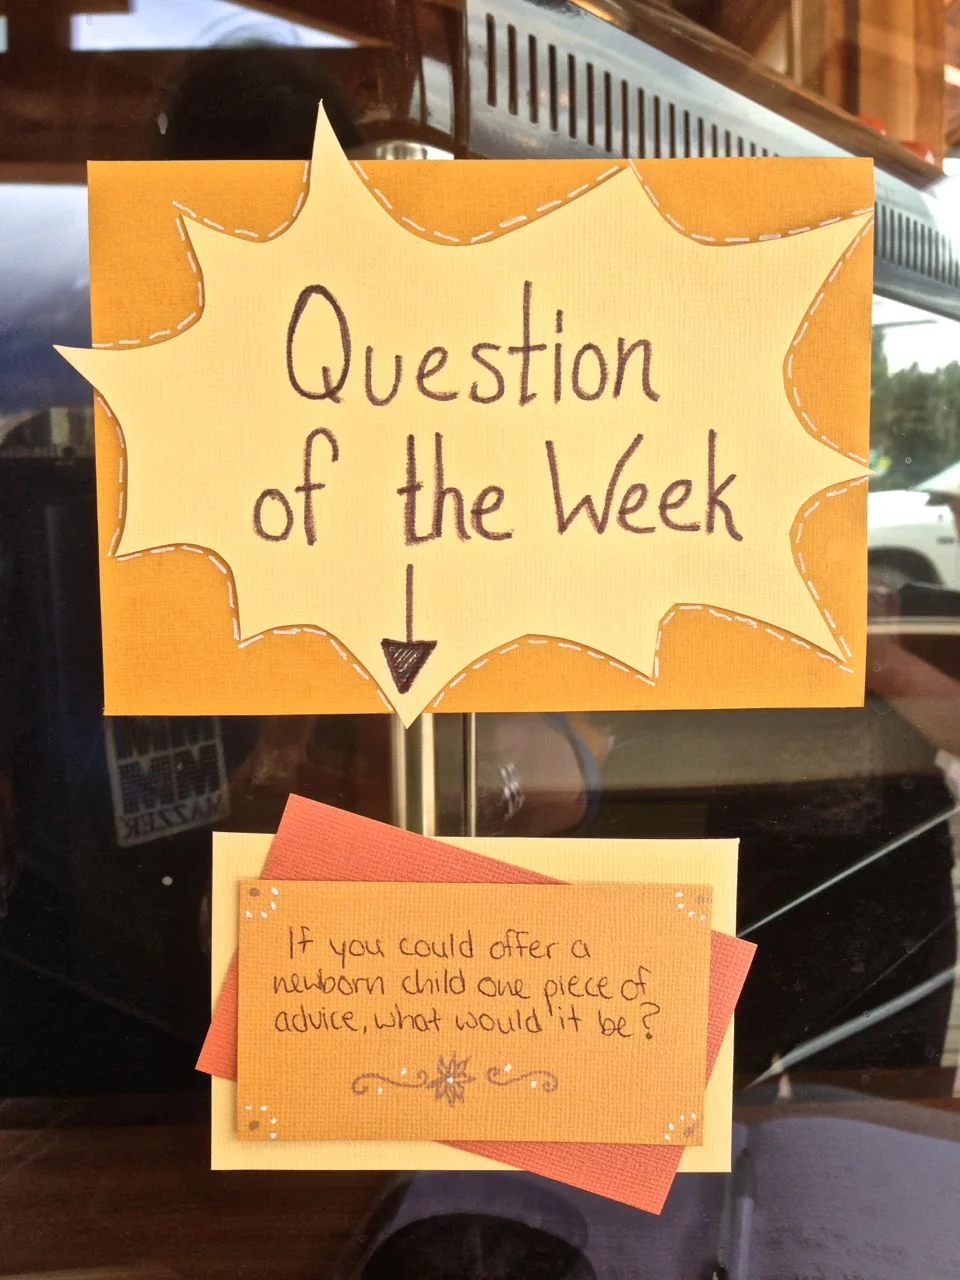 Question
of the Week
MAZZER
If you could offer a
newborn child one piece of
advice, what would it be?